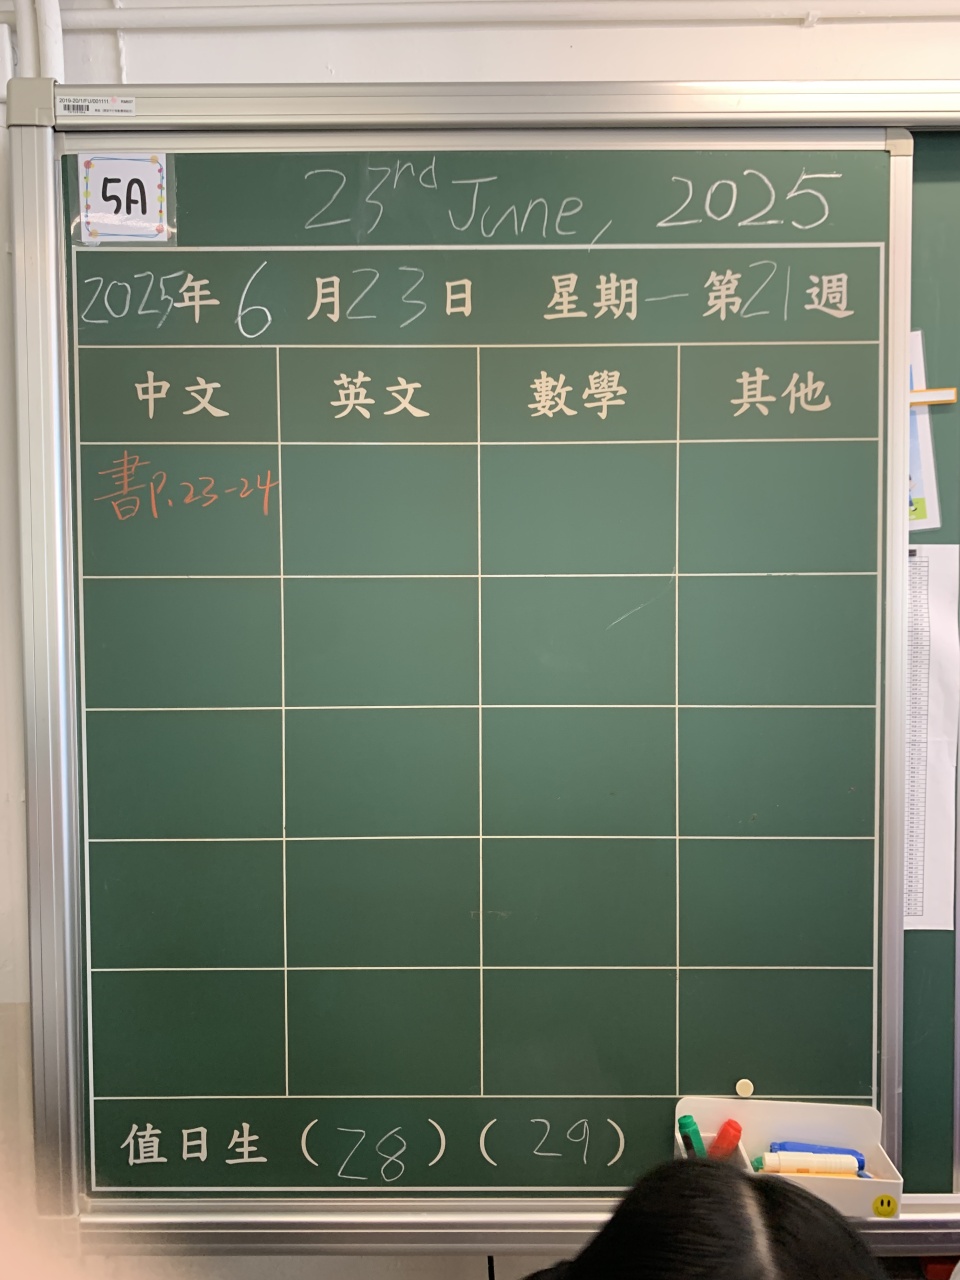 2019-20/1/FU/001111
5A
23rd June, 2025
2025年6月23日 星期一 第21週
中文 英文 數學 其他
書P.23-24
值日生 (28) (29)